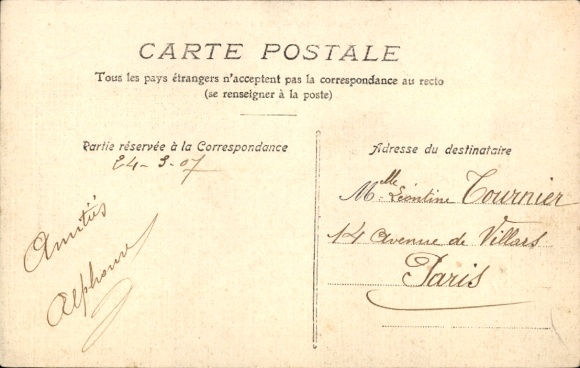 CARTE POSTALE
Tous les pays étrangers n'acceptent pas la correspondance au recto
(se renseigner à la poste)
Partie réservée à la Correspondance
24-9-07
Amitiés
Alphonse
Adresse du destinataire
Melle Léontine Tournier
14 Avenue de Villars
Paris